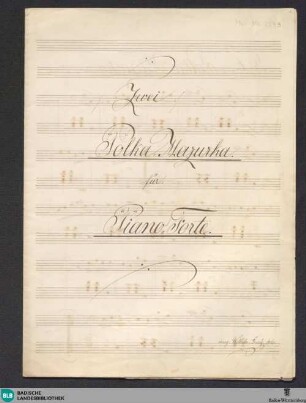 Zwei
Polka Mazurka.
für
Piano Forte.
BLB BADISCHE
LANDESBIBLIOTHEK
Baden-Württemberg